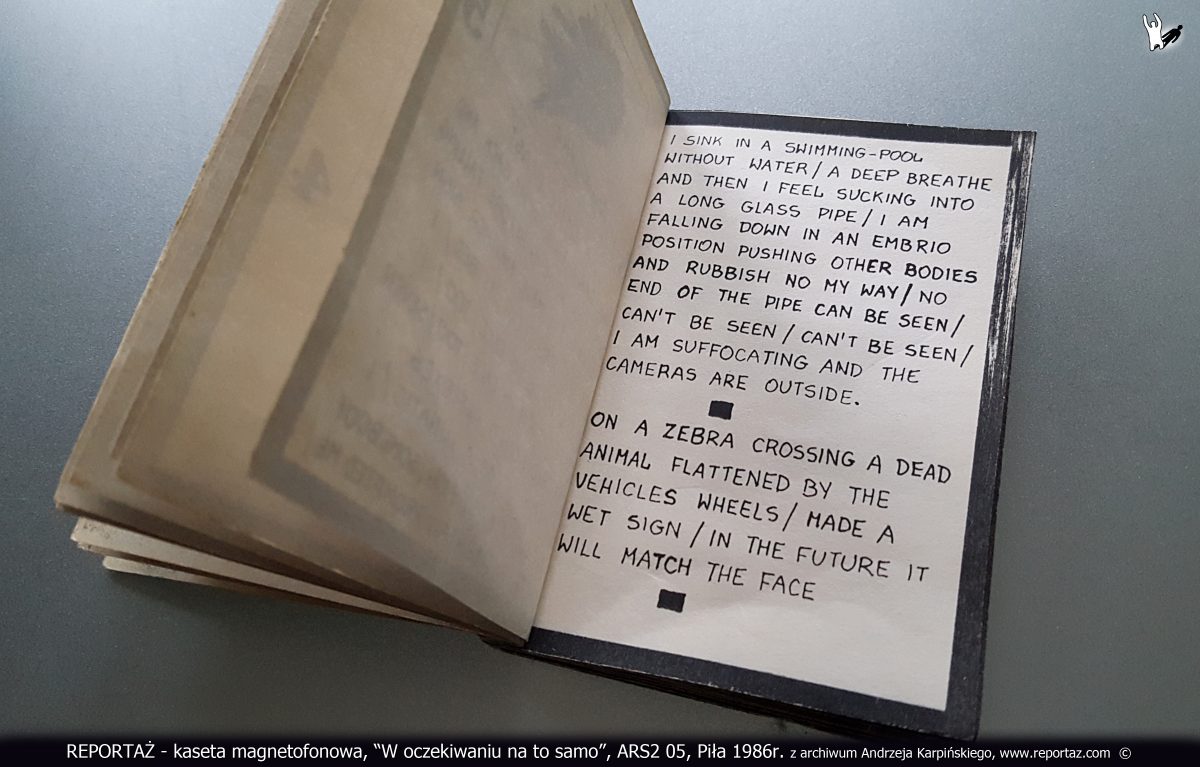 I SINK IN A SWIMMING-POOL
WITHOUT WATER / A DEEP BREATHE
AND THEN I FEEL SUCKING INTO
A LONG GLASS PIPE / I AM
FALLING DOWN IN AN EMBRIO
POSITION PUSHING OTHER BODIES
AND RUBBISH NO MY WAY / NO
END OF THE PIPE CAN BE SEEN /
CAN'T BE SEEN / CAN'T BE SEEN /
I AM SUFFOCATING AND THE
CAMERAS ARE OUTSIDE.
ON A ZEBRA CROSSING A DEAD
ANIMAL FLATTENED BY THE
VEHICLES WHEELS / MADE A
WET SIGN / IN THE FUTURE IT
WILL MATCH THE FACE
REPORTAŻ - kaseta magnetofonowa, “W oczekiwaniu na to samo”, ARS2 05, Piła 1986r. z archiwum Andrzeja Karpińskiego, www.reportaz.com ©